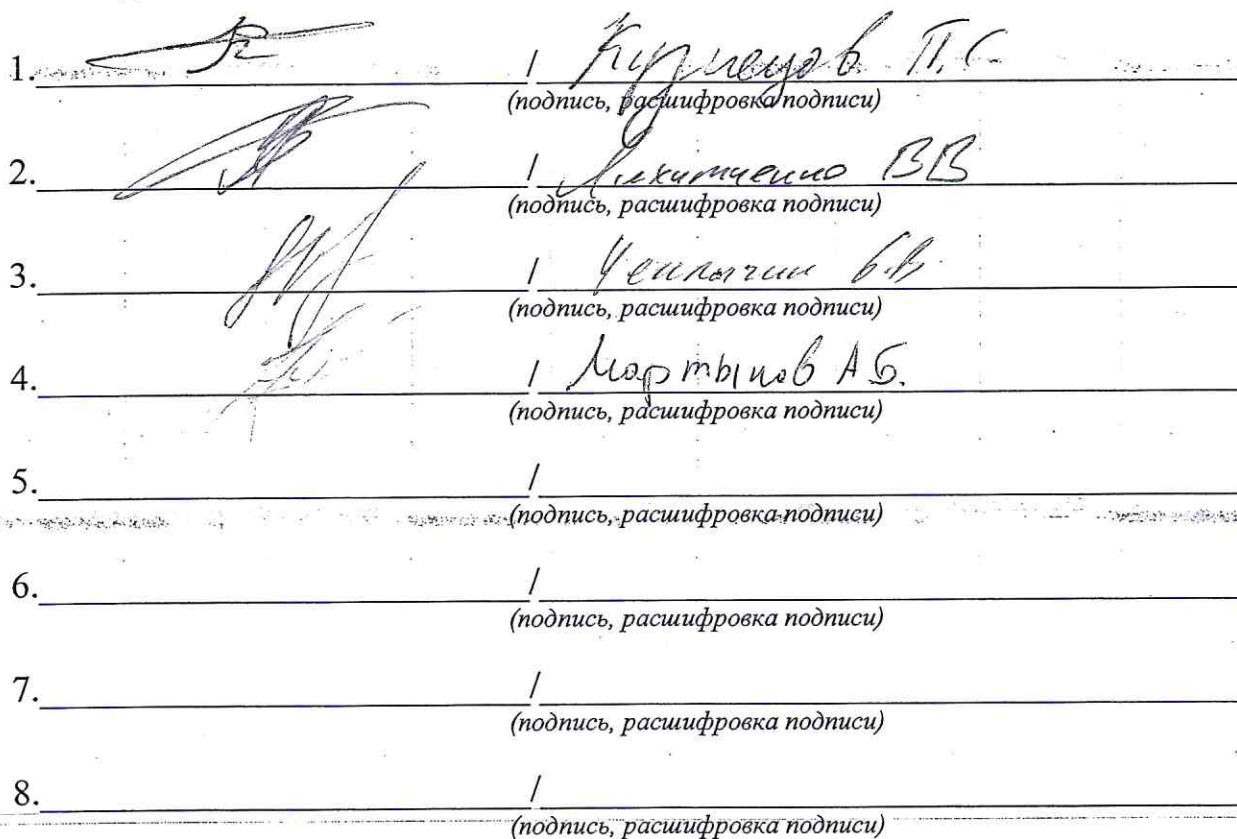 1. / Кузнецов П.С
(подпись, расшифровка подписи)
2. / ВВ
(подпись, расшифровка подписи)
3. /
(подпись, расшифровка подписи)
4. / Мартынов А Б.
(подпись, расшифровка подписи)
5. /
(подпись, расшифровка подписи)
6. /
(подпись, расшифровка подписи)
7. /
(подпись, расшифровка подписи)
8. /
(подпись, расшифровка подписи)